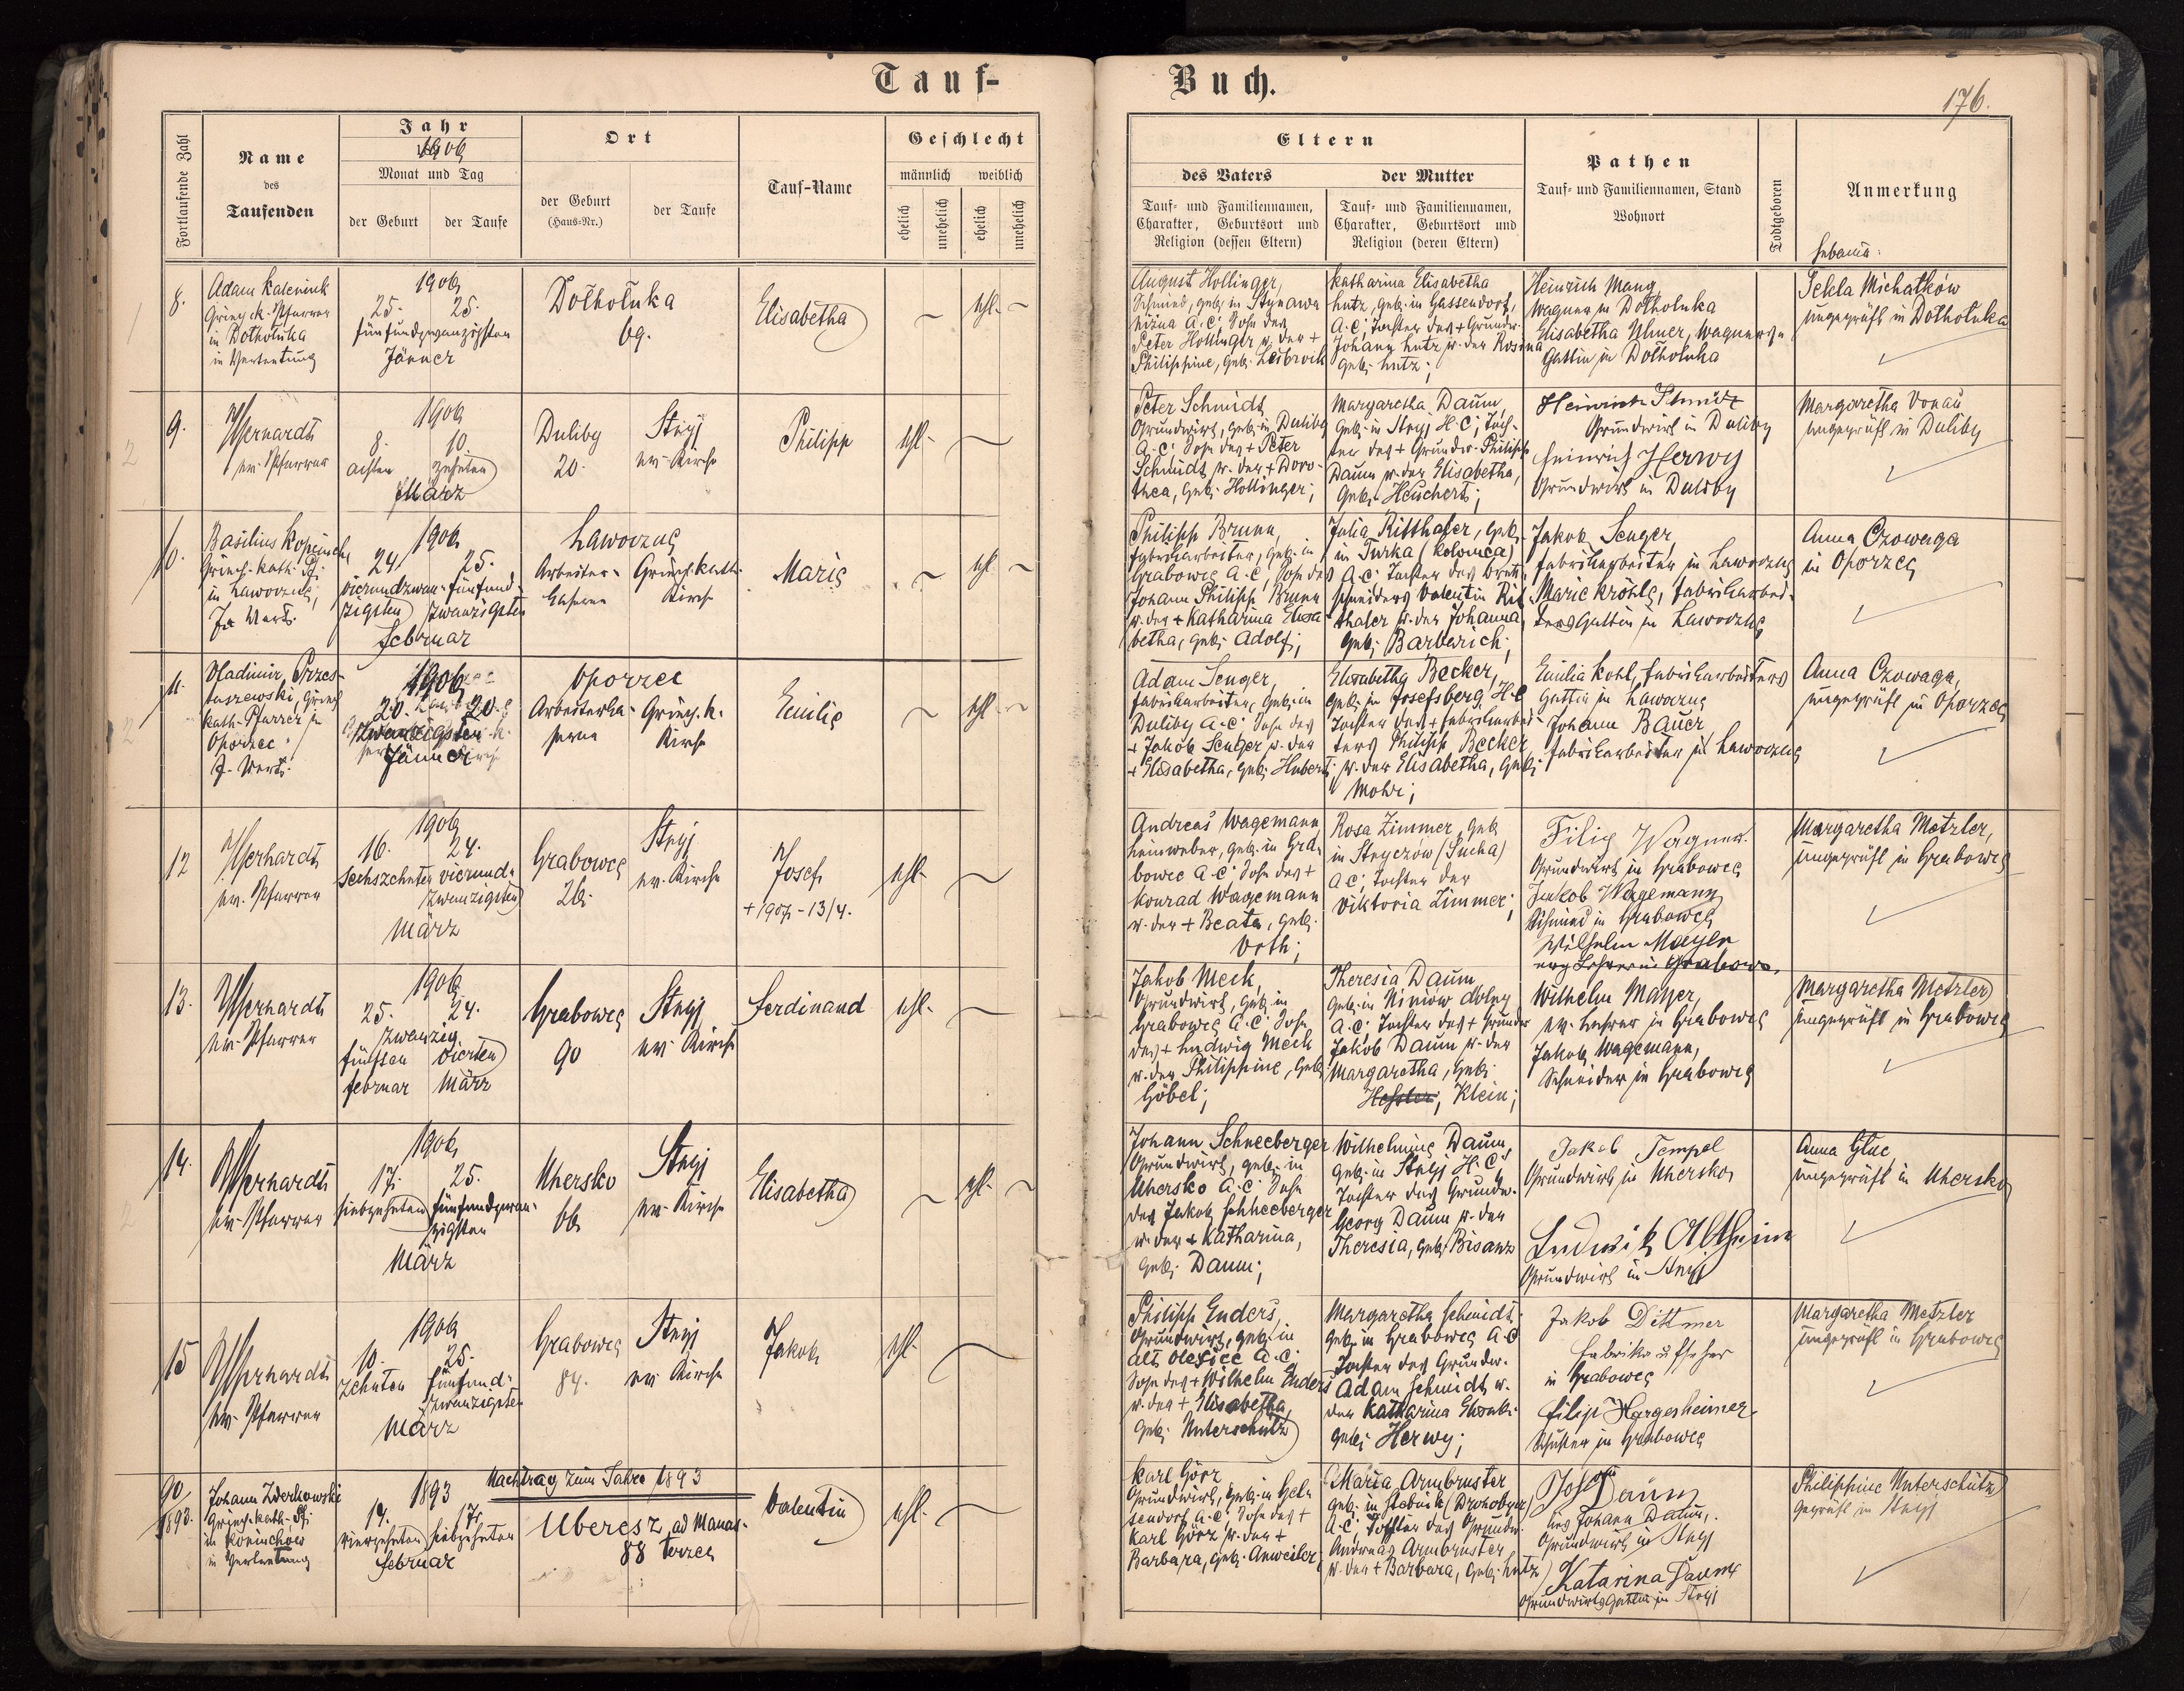 Tauf-
Buch.
176.
Fortlaufende Zahl
Name
des
Taufenden
Jahr
1906
Monat und Tag
der Geburt
der Taufe
Ort
der Geburt
(Haus-Nr.)
der Taufe
Tauf-Name
Geschlecht
männlich
weiblich
ehelich
unehelich
ehelich
unehelich
Eltern
des Vaters
der Mutter
Tauf- und Familiennamen,
Charakter, Geburtsort und
Religion (dessen Eltern)
Tauf- und Familiennamen,
Charakter, Geburtsort und
Religion (deren Eltern)
Pathen
Tauf- und Familiennamen, Stand
Wohnort
Todtgeboren
Anmerkung
Hebamme:
8.
Adam Kaleniuk
Griech. k. Pfarrer
in Dołhołuka
in Vertretung
1906
25. 25.
fünfundzwanzigsten
Jänner
Dołhołuka
69.
Elisabetha
ehl.
August Hollinger,
Schmied, geb. in Stynawa
niżna A.C., Sohn des
Peter Hollinger u. der +
Philippine, geb. Leibrock
Katharina Elisabetha
Lutz, geb. in Gassendorf,
A.C., Tochter des + Grundw.
Johann Lutz u. der Rosina
geb. Lutz;
Heinrich Mang
Wagner in Dołhołuka
Elisabetha Ulmer, Wagners
Gattin in Dołhołuka
Tekla Michatków
ungeprüft in Dołhołuka
9.
Gerhardt
ev. Pfarrer
1906
8. 10.
achten zehnten
März
Duliby
20.
Stryj
ev. Kirche
Philipp
ehl.
Peter Schmidt
Grundwirt, geb. in Duliby
A.C. Sohn des + Peter
Schmidt u. der + Doro-
thea, geb. Hollinger;
Margaretha Daum,
geb. in Stryj H.C., Toch-
ter des + Grundw. Philipp
Daum u. der Elisabetha,
geb. Heuchert;
Heinrich Schmidt
Grundwirt in Duliby
Heinrich Herwy
Grundwirt in Duliby
Margaretha Donau
ungeprüft in Duliby
10.
Griech. kath. Pf.
in Lawoczne,
In Vert.
1906
24. 25.
vierundzwan- fünfund-
zigsten zwanzigsten
Februar
Lawoczne
Arbeiter- Griech. kath.
Kaserne Kirche
Marie
ehl.
Philipp Brunn,
Fabrikarbeiter, geb. in
Grabowce A.C., Sohn des
Johann Philipp Brunn
u. der + Katharina Elisa-
betha, geb. Adolf;
Julia Ritthaler, geb.
in Turka (Kolomea)
A.C., Tochter des Brett-
schneiders Valentin Rit-
thaler u. der Johanna
geb. Barberich;
Jakob Senger,
Fabrikarbeiter in Lawoczne
Marie Kröhle, Fabrikarbei-
ters Gattin in Lawoczne
Anna Czowaga
in Oporzec
11.
Wladimir Przes-
taszewski, Griech.
kath. Pfarrer in
Oporzec
I. Vert.
1906
20. 20.
zwanzigsten
Jänner
Oporzec
Arbeiterka- Griech. k.
serne Kirche
Emilie
ehl.
Adam Senger,
Fabrikarbeiter, geb. in
Duliby A.C. Sohn des
+ Jakob Senger u. der
+ Elisabetha, geb. Hubert;
Elisabetha Becker,
geb. in Josefsberg, H.C.
Tochter des + Fabrikarbei-
ters Philipp Becker,
u. der Elisabetha, geb.
Mohr;
Emilia Kohl, Fabrikarbeiters
Gattin in Lawoczne
Johann Bauer
Fabrikarbeiter in Lawoczne
Anna Czowaga,
ungeprüft in Oporzec
12
Gerhardt
ev. Pfarrer
1906
16. 24.
Sechszehnten vierund-
zwanzigsten
März
Grabowce
26.
Stryj
ev. Kirche
Josef
+ 1907 - 13/4.
ehl.
Andreas Wagemann
Leinweber, geb. in Gra-
bowce A.C. Sohn des +
Konrad Wagemann
u. der + Beata, geb.
Voth;
Rosa Zimmer, geb.
in Stryczów (Sucha)
A.C., Tochter der
Viktoria Zimmer;
Filip Wagner
Grundwirt in Grabowce
Jakob Wagemann
Schmied in Grabowce
Wilhelm Mayer
evg Lehrer in Grabowce
Margaretha Metzler,
ungeprüft in Grabowce
13.
Gerhardt
ev. Pfarrer
1906
25. 24.
zwanzig.
fünften vierten
Februar März
Grabowce
90
Stryj
ev. Kirche
Ferdinand
ehl.
Jakob Meck,
Grundwirt, geb. in
Grabowce A.C. Sohn
des + Ludwig Meck
u. der Philippine, geb.
Göbel;
Theresia Daum
geb. in Niniów dolny
A.C., Tochter des + Grundw.
Jakob Daum u. der
Margaretha, geb.
Hessler, Klein;
Wilhelm Mayer,
ev. Lehrer in Grabowce
Jakob Wagemann,
Schneider in Grabowce
Margaretha Metzler
ungeprüft in Grabowce
14.
Gerhardt
ev. Pfarrer
1906
17. 25.
siebzehnten fünfundzwan-
zigsten
März
Uhersko
66
Stryj
ev. Kirche
Elisabetha
ehl.
Johann Schneeberger
Grundwirt, geb. in
Uhersko A.C. Sohn
des Jakob Schneeberger
u. der + Katharina,
geb. Daum;
Wilhelmine Daum,
geb. in Stryj H.C.,
Tochter des Grundw.
Georg Daum u. der
Theresia, geb. Bisanz
Jakob Tempel
Grundwirt in Uhersko
Ludwik Altheim
Grundwirt in Stryj
Anna Gluc
ungeprüft in Uhersko
15
Gerhardt
ev. Pfarrer
1906
10. 25.
zehnten fünfund-
zwanzigsten
März
Grabowce
84.
Stryj
ev. Kirche
Jakob
ehl.
Philipp Enders,
Grundwirt, geb. in
Alt Oleszice A.C.
Sohn des + Wilhelm Enders
u. der + Elisabetha
geb. Unterschütz
Margaretha Schmidt
geb. in Grabowce A.C
Tochter des Grundw.
Adam Schmidt u.
der Katharina Elisab.
geb. Herwy;
Jakob Dittmer
Fabriksaufseher
in Grabowce
Filip Hargesheimer
Schuster in Grabowce
Margaretha Metzler
ungeprüft in Grabowce
90
1893.
Johann Zderkowski
Griech. kath. Pf.
in Koniuchów
in Vertretung
Nachtrag zum Jahre 1893
1893
14. 17.
vierzehnten siebzehnten
Februar
Uberesz ad Manas-
88 terzec
Valentin
ehl.
Karl Görz
Grundwirt, geb. in Geln
sendorf A.C. Sohn des +
Karl Görz u. der +
Barbara, geb. Anweiler;
Maria Armbruster
geb. in Stebnik (Drohobycz)
A.C., Tochter des Grundw.
Andreas Armbruster
u. der + Barbara, geb. Lutz
Josef Daum
des Johann Daum,
Grundwirt in Stryj
Katarina Daum
Grundwirts Gattin in Stryj
Philippine Unterschütz
geprüft in Stryj